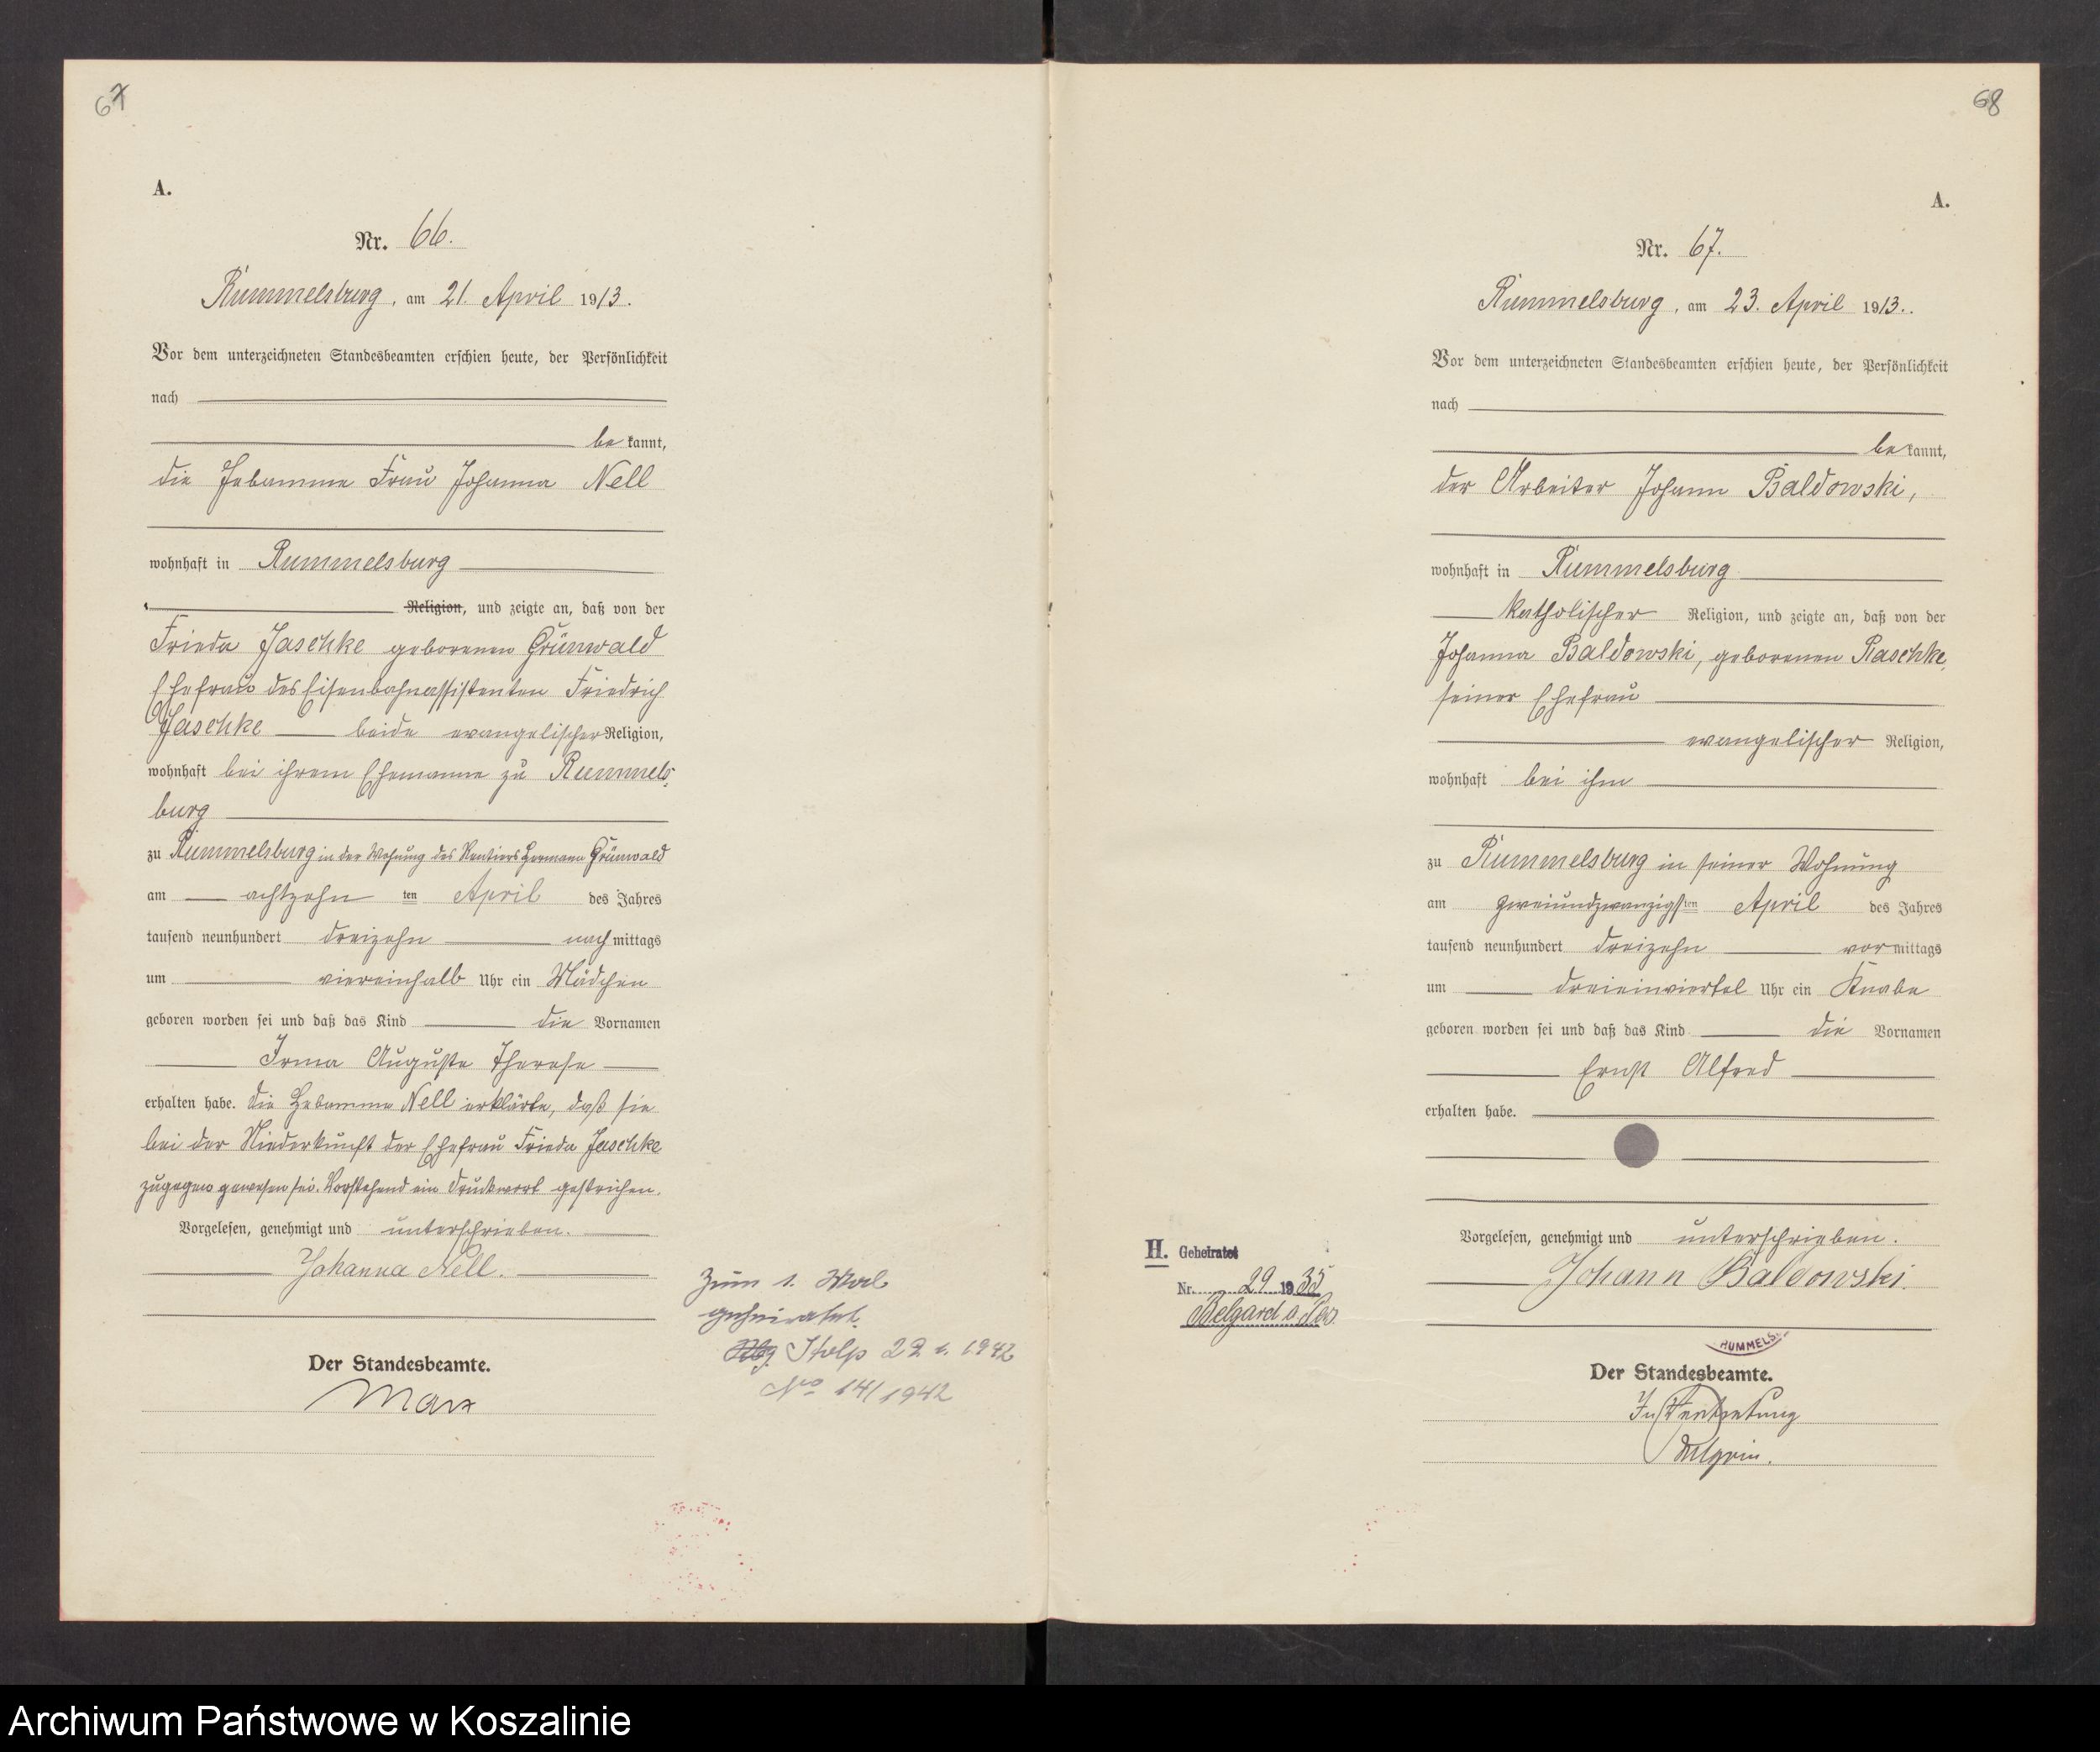 67
A.
Nr. 66.
Rummelsburg, am 21. April 1913.
Vor dem unterzeichneten Standesbeamten erschien heute, der Persönlichkeit
nach
bekannt,
die Hebamme Frau Johanna Nell
wohnhaft in Rummelsburg
Religion, und zeigte an, daß von der
Frieda Jaschke geborenen Grünwald
Ehefrau des Eisenbahnassistenten Friedrich
Jaschke beide evangelischer Religion,
wohnhaft bei ihrem Ehemanne zu Rummels-
burg
zu Rummelsburg in der Wohnung des Rentiers Hermann Grünwald
am achtzehnten April des Jahres
tausend neunhundert dreizehn nachmittags
um viereinhalb Uhr ein Mädchen
geboren worden sei und daß das Kind die Vornamen
Irma Auguste Therese
erhalten habe. Die Hebamme Nell erklärte, daß sie
bei der Niederkunft der Ehefrau Frieda Jaschke
zugegen gewesen sei. Vorstehend ein Druckwort gestrichen.
Vorgelesen, genehmigt und unterschrieben.
Johanna Nell.
Der Standesbeamte.
Marx
Zum 1. Mal
geheiratet.
Stolp 22 1. 1942
No 14/1942
68
A.
Nr. 67.
Rummelsburg, am 23. April 1913.
Vor dem unterzeichneten Standesbeamten erschien heute, der Persönlichkeit
nach
bekannt,
der Arbeiter Johann Baldowski,
wohnhaft in Rummelsburg
katholischer Religion, und zeigte an, daß von der
Johanna Baldowski, geborenen Raschke,
seiner Ehefrau
evangelischer Religion,
wohnhaft bei ihm
zu Rummelsburg in seiner Wohnung
am zweiundzwanzigsten April des Jahres
tausend neunhundert dreizehn vormittags
um dreieinviertel Uhr ein Knabe
geboren worden sei und daß das Kind die Vornamen
Ernst Alfred
erhalten habe.
Vorgelesen, genehmigt und unterschrieben.
Johann Baldowski.
RUMMELS
Der Standesbeamte.
In Vertretung
H. Geheiratet
Nr. 29 1935
Belgard a. Pers.
Archiwum Państwowe w Koszalinie